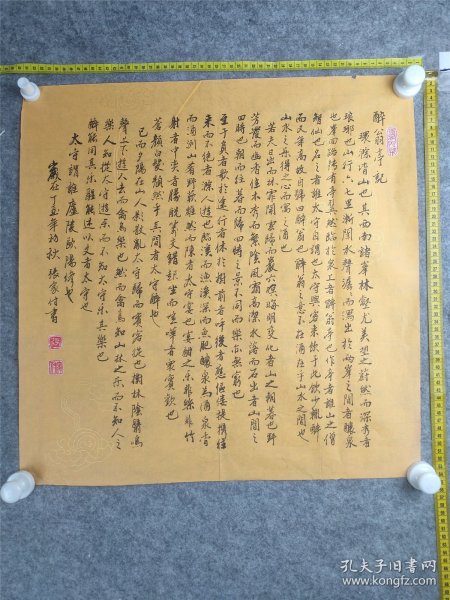 醉翁亭記
環滁皆山也其西南諸峯林壑尤美望之蔚然而深秀者
琅琊也山行六七里漸聞水聲潺而瀉出於兩峯之間者釀泉
也峯回路轉有亭翼然臨於泉上者醉翁亭也作亭者誰山之僧
智仙也名之者誰太守自謂也太守與客來飲于此飲少輒醉
而又年高故自號曰醉翁也醉翁之意不在酒在乎山水之間也
山水之樂得之心而寓之酒也
若夫日出而林霏開雲歸而巖穴暝晦明變化者山之朝暮也野
芳發而幽香佳木秀而繁陰風霜高潔水落而石出者山間之
四時也朝而往暮而歸四時之景不同而樂亦無窮也
至于負者歌於途行者休於樹前者呼後者應傴僂提攜往
來而不絕者滁人遊也臨溪而漁溪深而魚肥釀泉為酒泉香
而酒洌山肴野蔌雜然而陳者太守宴也宴酣之樂非絲非竹
射者中奕者勝觥籌交錯起坐而諠嘩者衆賓歡也
蒼顏白髮頹然乎其間者太守醉也
已而夕陽在山人影散亂太守歸而賓客從也樹林陰翳鳴
聲上下遊人去而禽鳥樂也然而禽鳥知山林之樂而不知人之
樂人知從太守遊而樂而不知太守樂其樂也
醉能同其樂醒能述以文者太守也
太守謂誰廬陵歐陽修也
歲在丁亥年初秋張家付書
孔夫子旧书网
www.kongfz.com